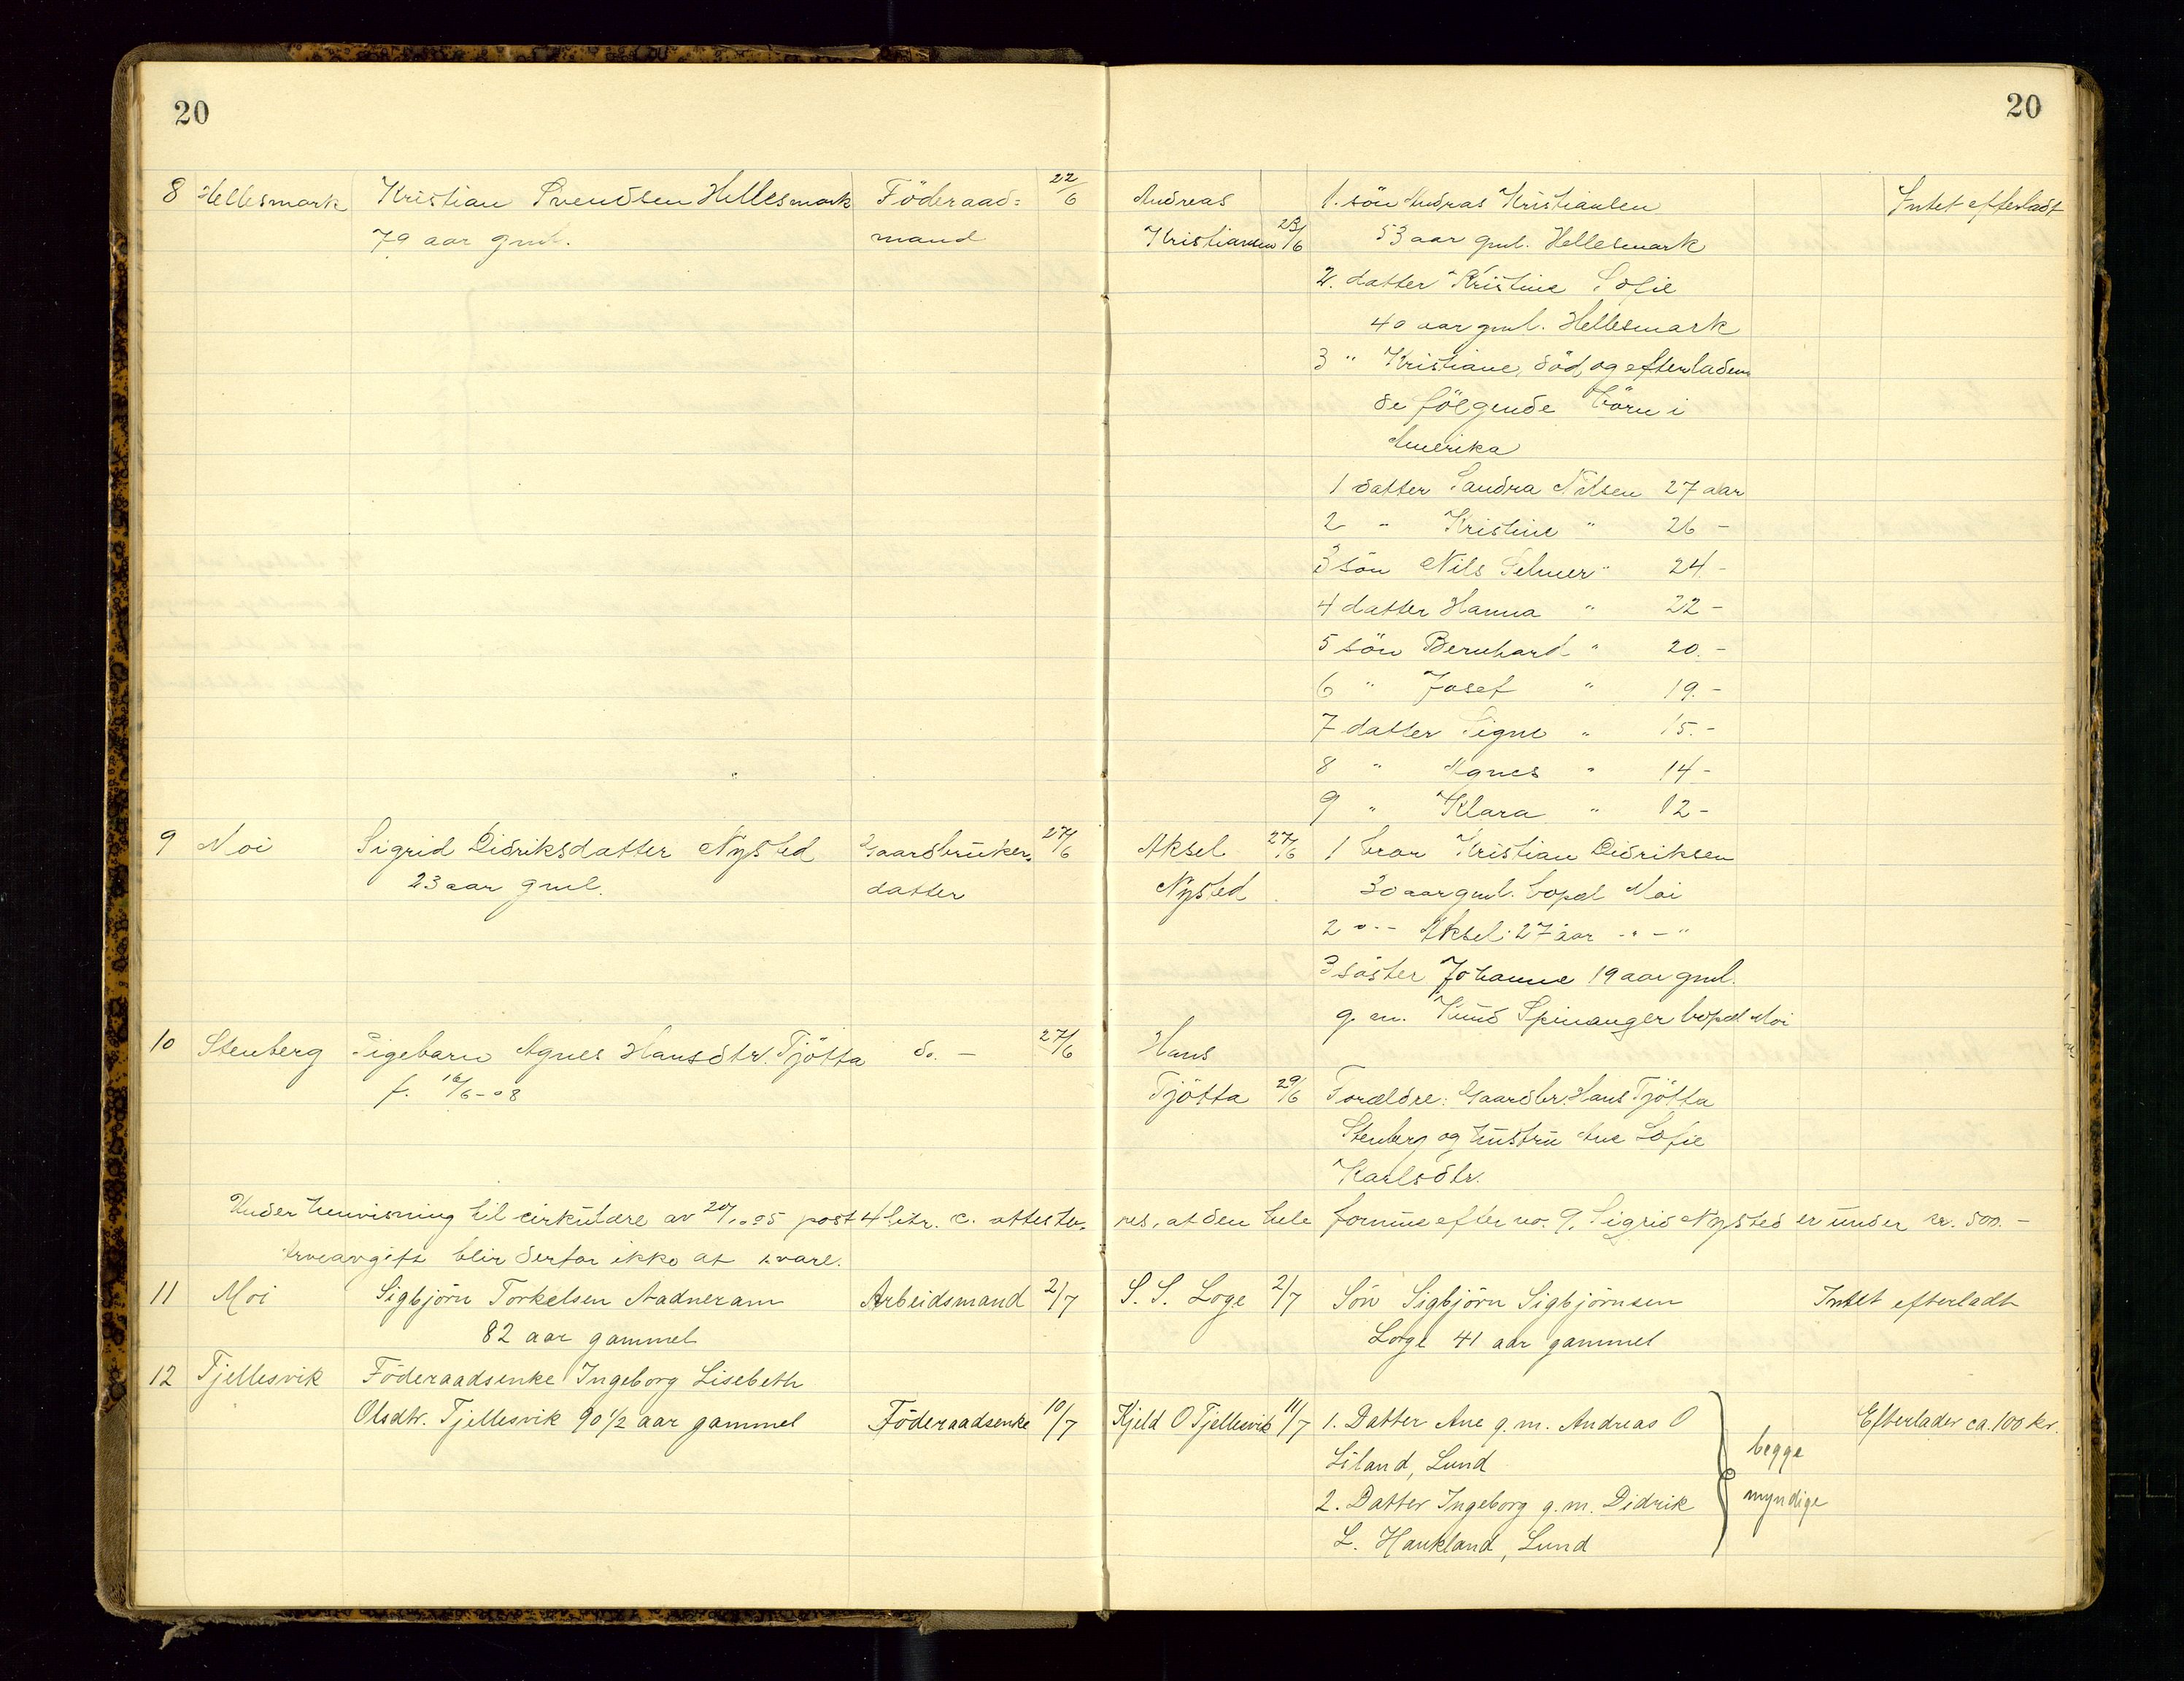 20
20
8 Hellesmark Kristian Svendsen Hellesmark Föderaad= 22/6 Andreas 1. sön Andras Kristiansen Intet efterladt
79 aar gml. mand Kristiansen 23/6 53 aar gml. Hellesmark
2. datter Kristine Sofie
40 aar gml. Hellesmark
3 " Kristiane, död, og efterladen
de fölgende börn i
Amerika
1 datter Sandra Nilsen 27 aar
2 " Kristine " 26 -
3 sön Nils Selmer " 24 -
4 datter Hanna " 22 -
5 sön Bernhard " 20. -
6 " Josef " 19. -
7 datter Signe " 15. -
8 " Agnes " 14 -
9 " Klara " 12 -
9 Moi Sigrid Didriksdatter Nysted Gaardbruker, 27/6 Aksel 27/6 1 bror Kristian Didriksen
23 aar gml. datter Nysted 30 aar gml. bopel Moi
2 " - Aksel 27 aar - " - "
3 söster Johanne 19 aar gml.
g. m. Knud Spinanger bopel Moi
10 Stenberg Pigebarn Agnes Hansdtr. Tjötta do. - 27/6 Hans
f. 16/6-08 Tjötta 29/6 Forældre: Gaardbr. Hans Tjötta
Stenberg og hustru Ane Sofie
Karlsdtr.
Under henvisning til cirkulære av 20/10 05 post 4 litr. c. atteste- res, at den hele formue efter no. 9, Sigrid Nysted er under kr. 500. -
Arveavgift blir derfor ikke at svare.
11 Moi Sigbjörn Torkelsen Aadneram Arbeidsmand 2/7 S. S. Loge 2/7 Sön Sigbjörn Sigbjörnsen Intet efterladt
82 aar gammel Loge 41 aar gammel
12 Tjellesvik Föderaadsenke Ingeborg Lisebeth
Olsdtr. Tjellesvik 90 1/2 aar gammel Föderaadsenke 10/7 Kjeld O Tjellesvik 11/7 1. Datter Ane g. m. Andreas O Efterlader ca. 100 kr.
Liland, Lund begge
2. Datter Ingeborg g. m. Didrik myndige
L. Haukland, Lund